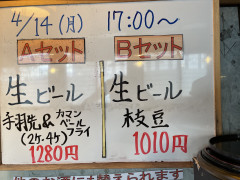 4/14(月) 17:00〜
Aセット
Bセット
生ビール
手羽先&カマンベールフライ
(2ケ・4ケ)
1280円
生ビール
枝豆
1010円